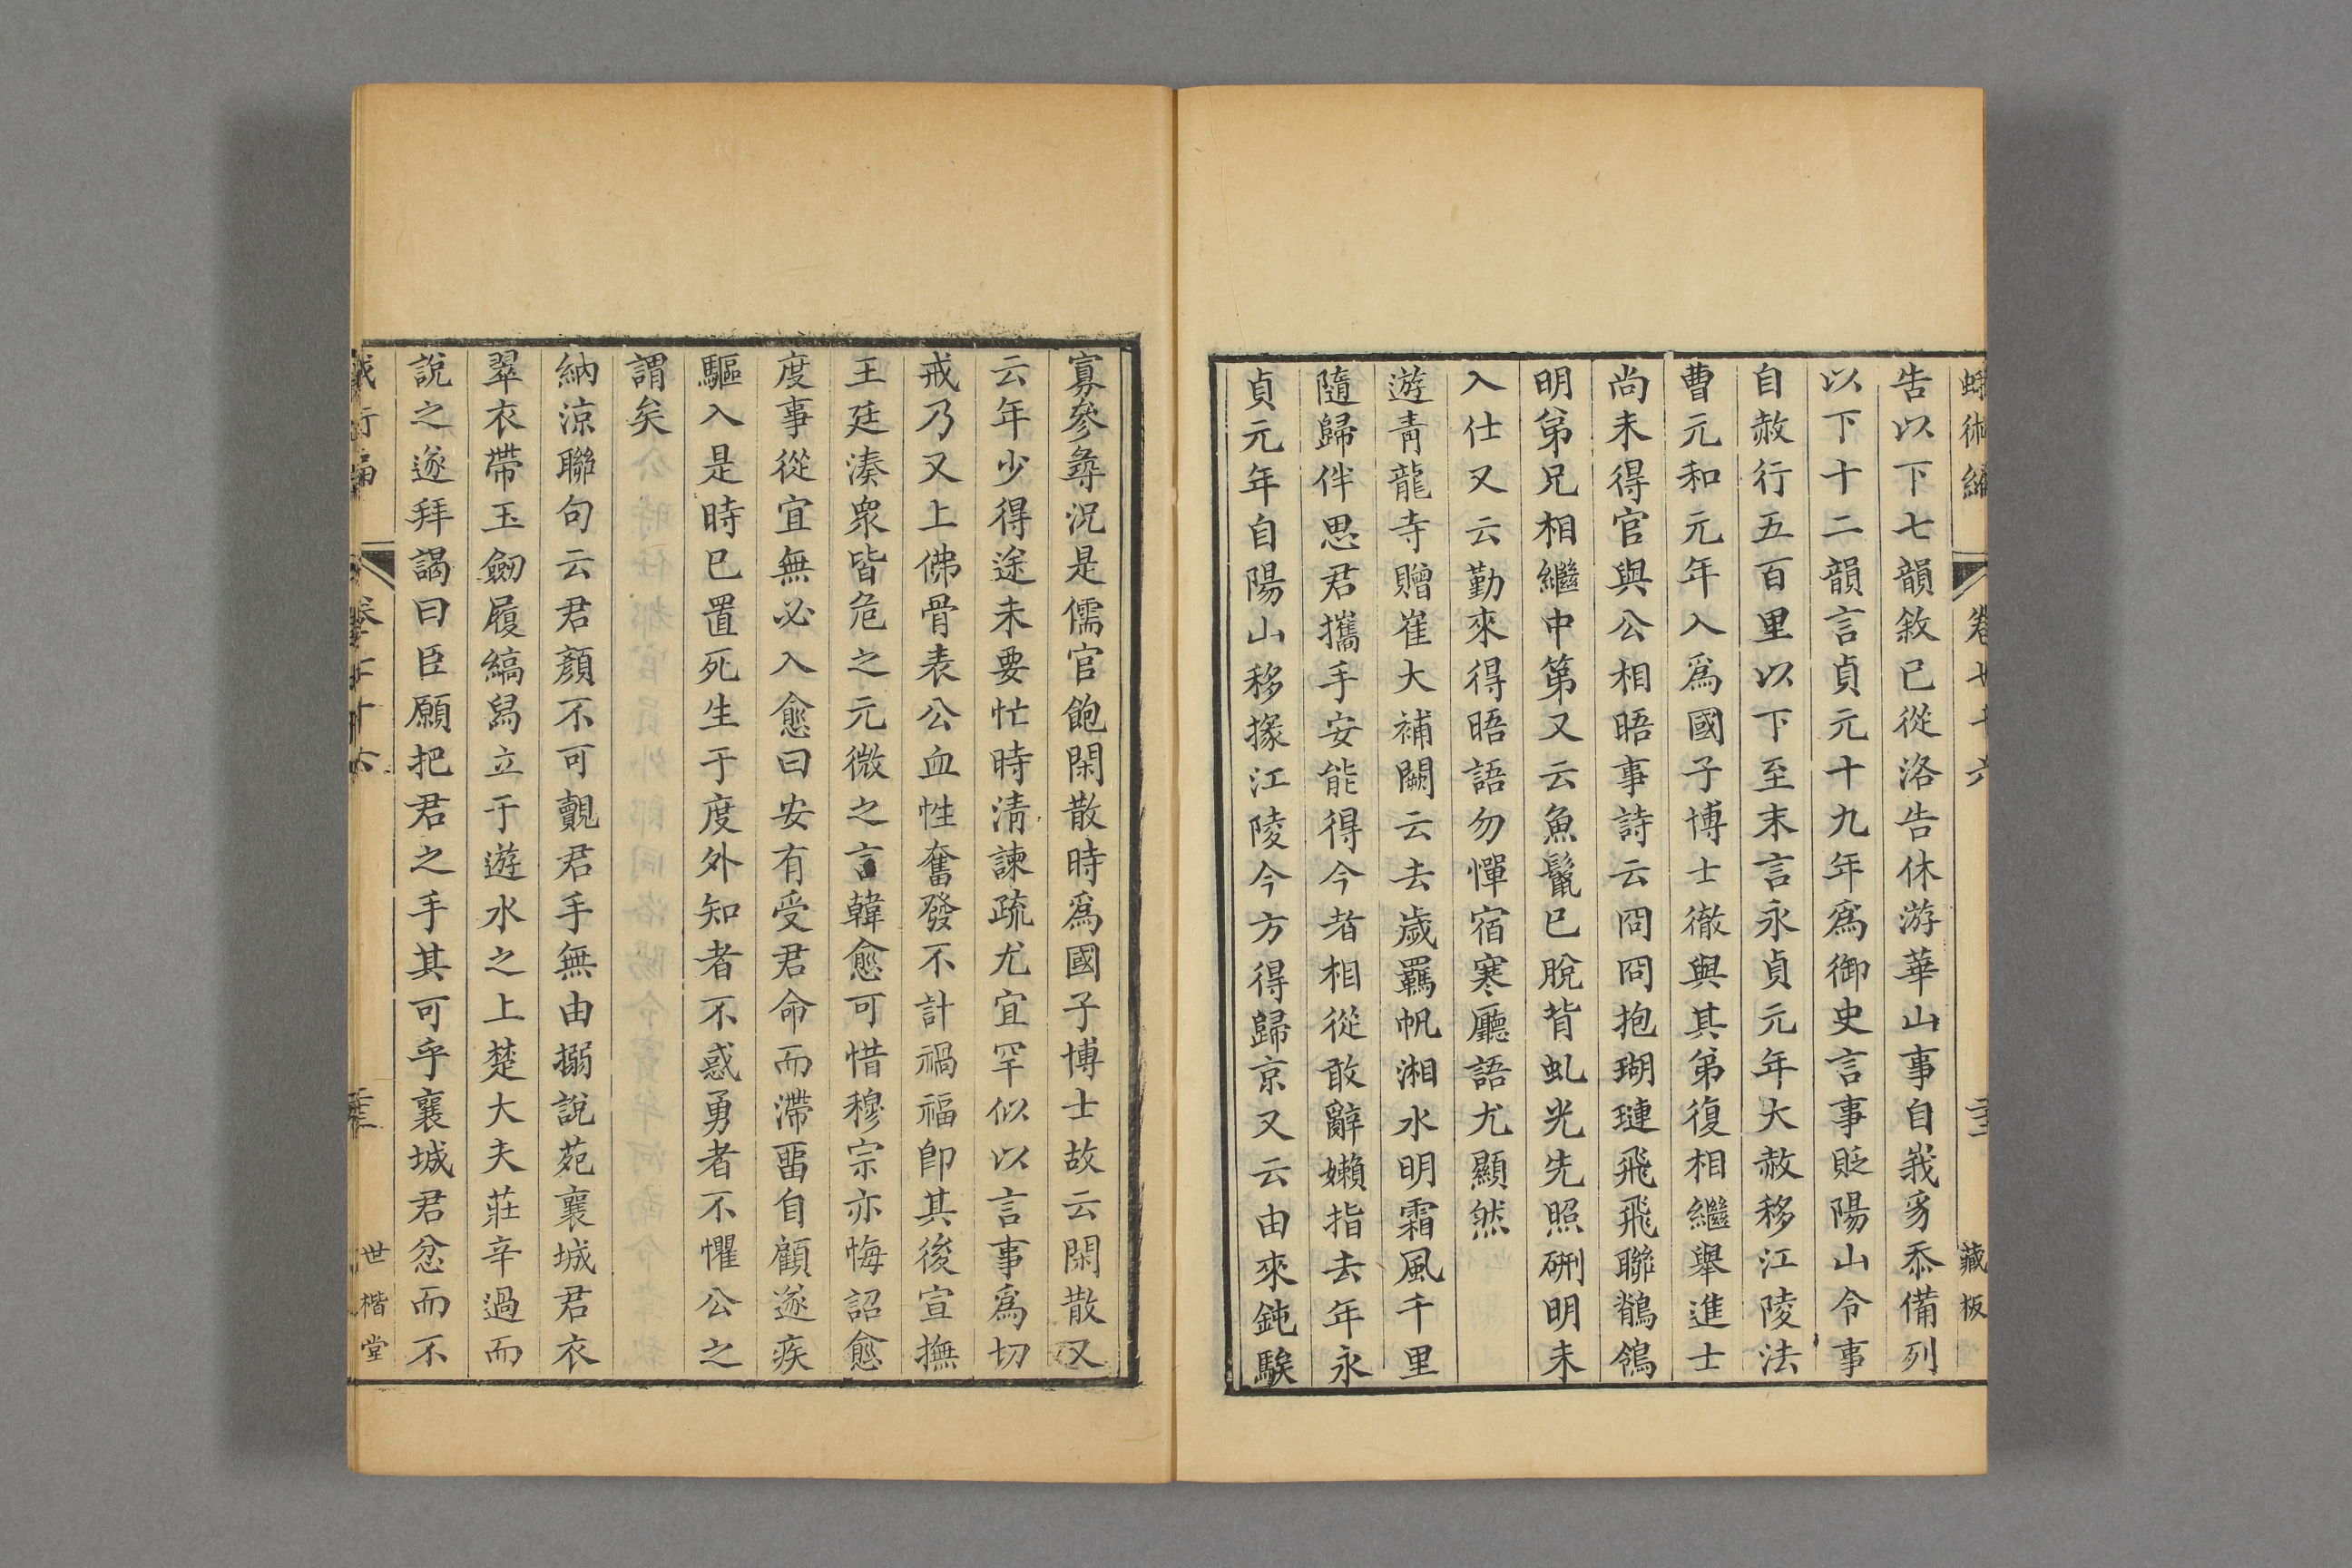 蛾術編 卷七十六 藏板
告以下七韻敘已從洛告休游華山事自峩豸忝備列
以下十二韻言貞元十九年爲御史言事貶陽山令事
自赦行五百里以下至末言永貞元年大赦移江陵法
曹元和元年入爲國子博士徹與其弟復相繼舉進士
尚未得官與公相晤事詩云冏冏抱瑚璉飛飛聯鶺鴒
明弟兄相繼中第又云魚鬛已脫背虬光先照硎明未
入仕又云勤來得晤語勿憚宿寒廳語尤顯然
遊靑龍寺贈崔大補闕云去歲羈帆湘水明霜風千里
隨歸伴思君攜手安能得今者相從敢辭嬾指去年永
貞元年自陽山移掾江陵今方得歸京又云由來鈍騃
寡參尋況是儒官飽閑散時爲國子博士故云閑散又
云年少得途未要忙時淸諫疏尤宜罕似以言事爲切
戒乃又上佛骨表公血性奮發不計禍福卽其後宣撫
王廷湊衆皆危之元微之言韓愈可惜穆宗亦悔詔愈
度事從宜無必入愈曰安有受君命而滯畱自顧遂疾
驅入是時已置死生于度外知者不惑勇者不懼公之
謂矣
納涼聯句云君顏不可覿君手無由搦說苑襄城君衣
翠衣帶玉劒履縞舄立于遊水之上楚大夫莊辛過而
說之遂拜謁曰臣願把君之手其可乎襄城君忿而不
世楷堂